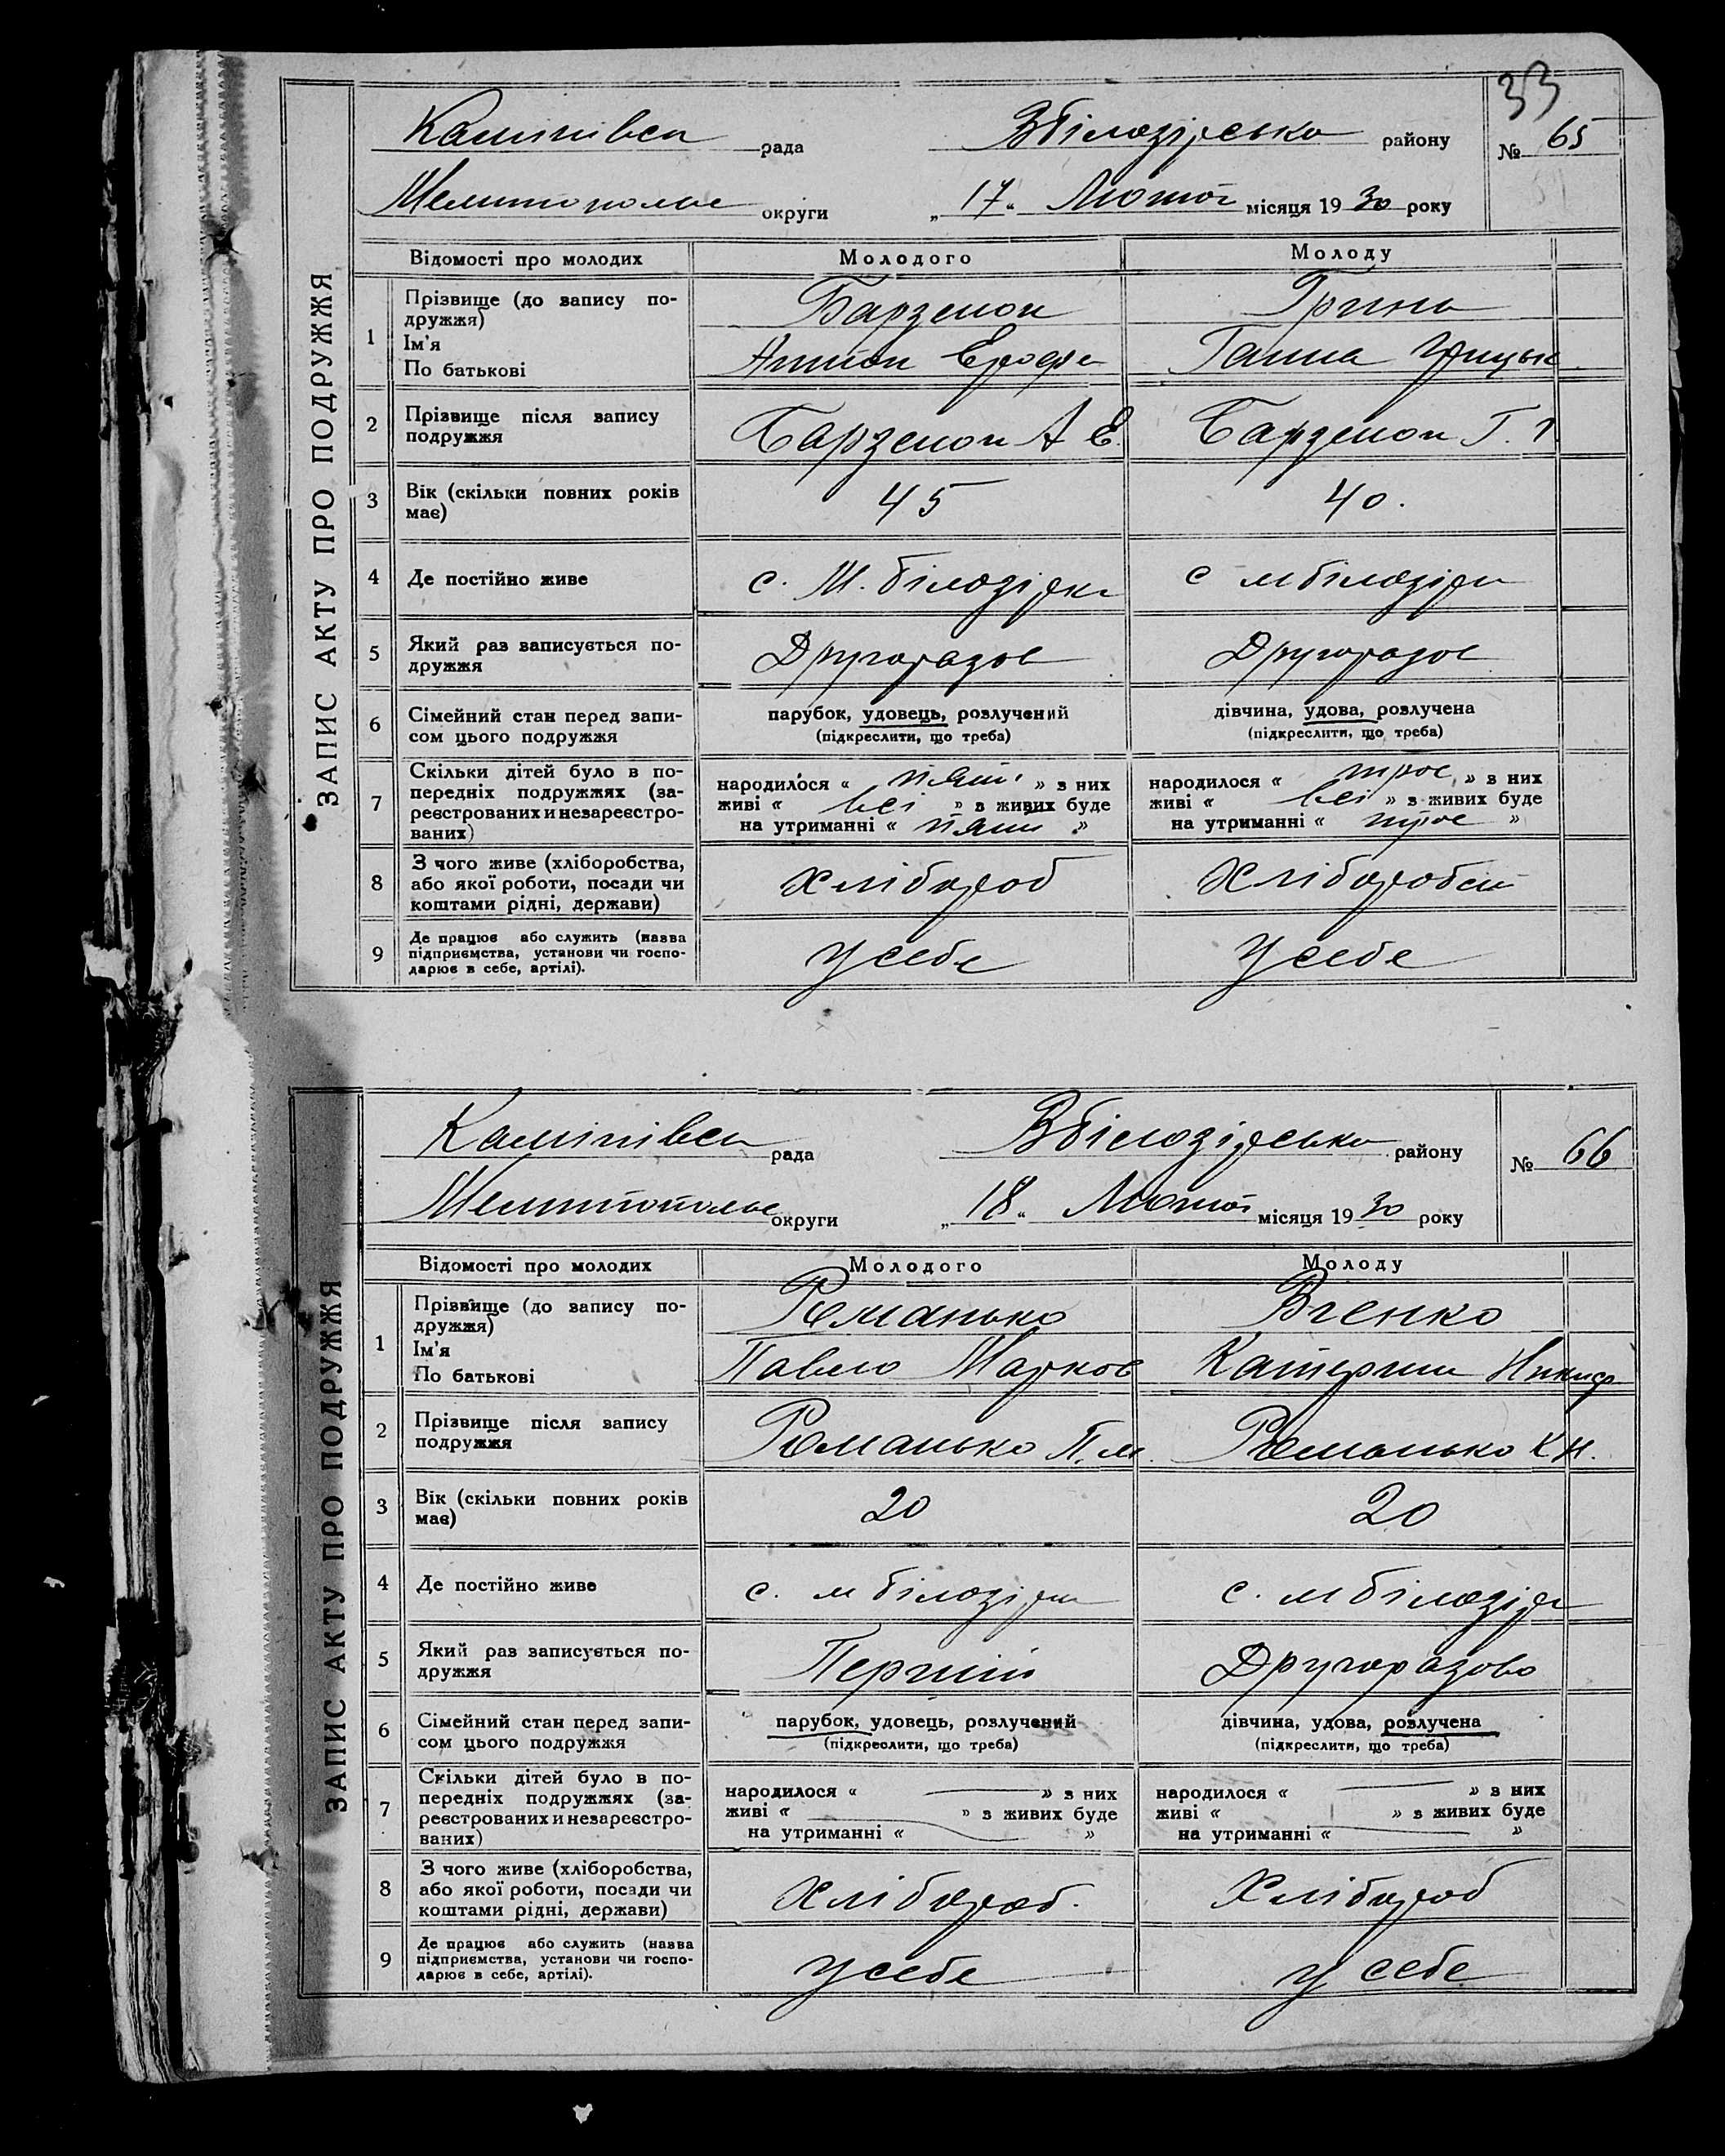 33
рада
Вбілозірсько району
№ 65
округи
„ 17 “ Лютого місяця 19 30 року
ЗАПИС АКТУ ПРО ПОДРУЖЖЯ
Відомості про молодих
Молодого
Молоду
1
Прізвище (до запису по-
дружжя)
Ім'я
По батькові
Гринь
Антон
Ганна
2
Прізвище після запису
подружжя
3
Вік (скільки повних років
має)
45
40.
4
Де постійно живе
с. М. білозірка
с м білозір
5
Який раз записується по-
дружжя
Другоразов
Другоразов
6
Сімейний стан перед запи-
сом цього подружжя
парубок, удовець, розлучений
(підкреслити, що треба)
дівчина, удова, розлучена
(підкреслити, що треба)
7
Скільки дітей було в по-
передніх подружжях (за-
реєстрованих и незареєстро-
ваних)
народилося « пять » з них
живі « всі » з живих буде
на утриманні « пять »
народилося « трое » з них
живі « всі » з живих буде
на утриманні « трое »
8
З чого живе (хліборобства,
або якої роботи, посади чи
коштами рідні, держави)
хлібороб
9
Де працює або служить (назва
підприємства, установи чи госпо-
дарює в себе, артілі).
у себе
у себе
рада
Вбілозірсько району
№ 66
округи
„ 18 “ Лютого місяця 19 30 року
ЗАПИС АКТУ ПРО ПОДРУЖЖЯ
Відомості про молодих
Молодого
Молоду
1
Прізвище (до запису по-
дружжя)
Ім'я
По батькові
Романько
Павло Марков
Катерина Никиф
2
Прізвище після запису
подружжя
Романько П. м.
Романько К Н.
3
Вік (скільки повних років
має)
20
20
4
Де постійно живе
с. м білозірка
с. м білозір
5
Який раз записується по-
дружжя
Перший
Другоразово
6
Сімейний стан перед запи-
сом цього подружжя
парубок, удовець, розлучений
(підкреслити, що треба)
дівчина, удова, розлучена
(підкреслити, що треба)
7
Скільки дітей було в по-
передніх подружжях (за-
реєстрованих и незареєстро-
ваних)
народилося « — » з них
живі « — » з живих буде
на утриманні « »
народилося « — » з них
живі « — » з живих буде
на утриманні « »
8
З чого живе (хліборобства,
або якої роботи, посади чи
коштами рідні, держави)
хлібороб.
хлібороб
9
Де працює або служить (назва
підприємства, установи чи госпо-
дарює в себе, артілі).
у себе
у себе